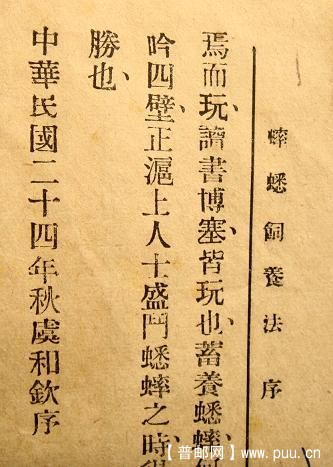 蟀蟋飼養法 序
焉而玩、讀書博塞皆玩也、蓄養蟋蟀
吟四壁、正滬上人士盛鬥蟋蟀之時、
勝也、
中華民國二十四年秋虞和欽序
【普邮网】www.puu.cn